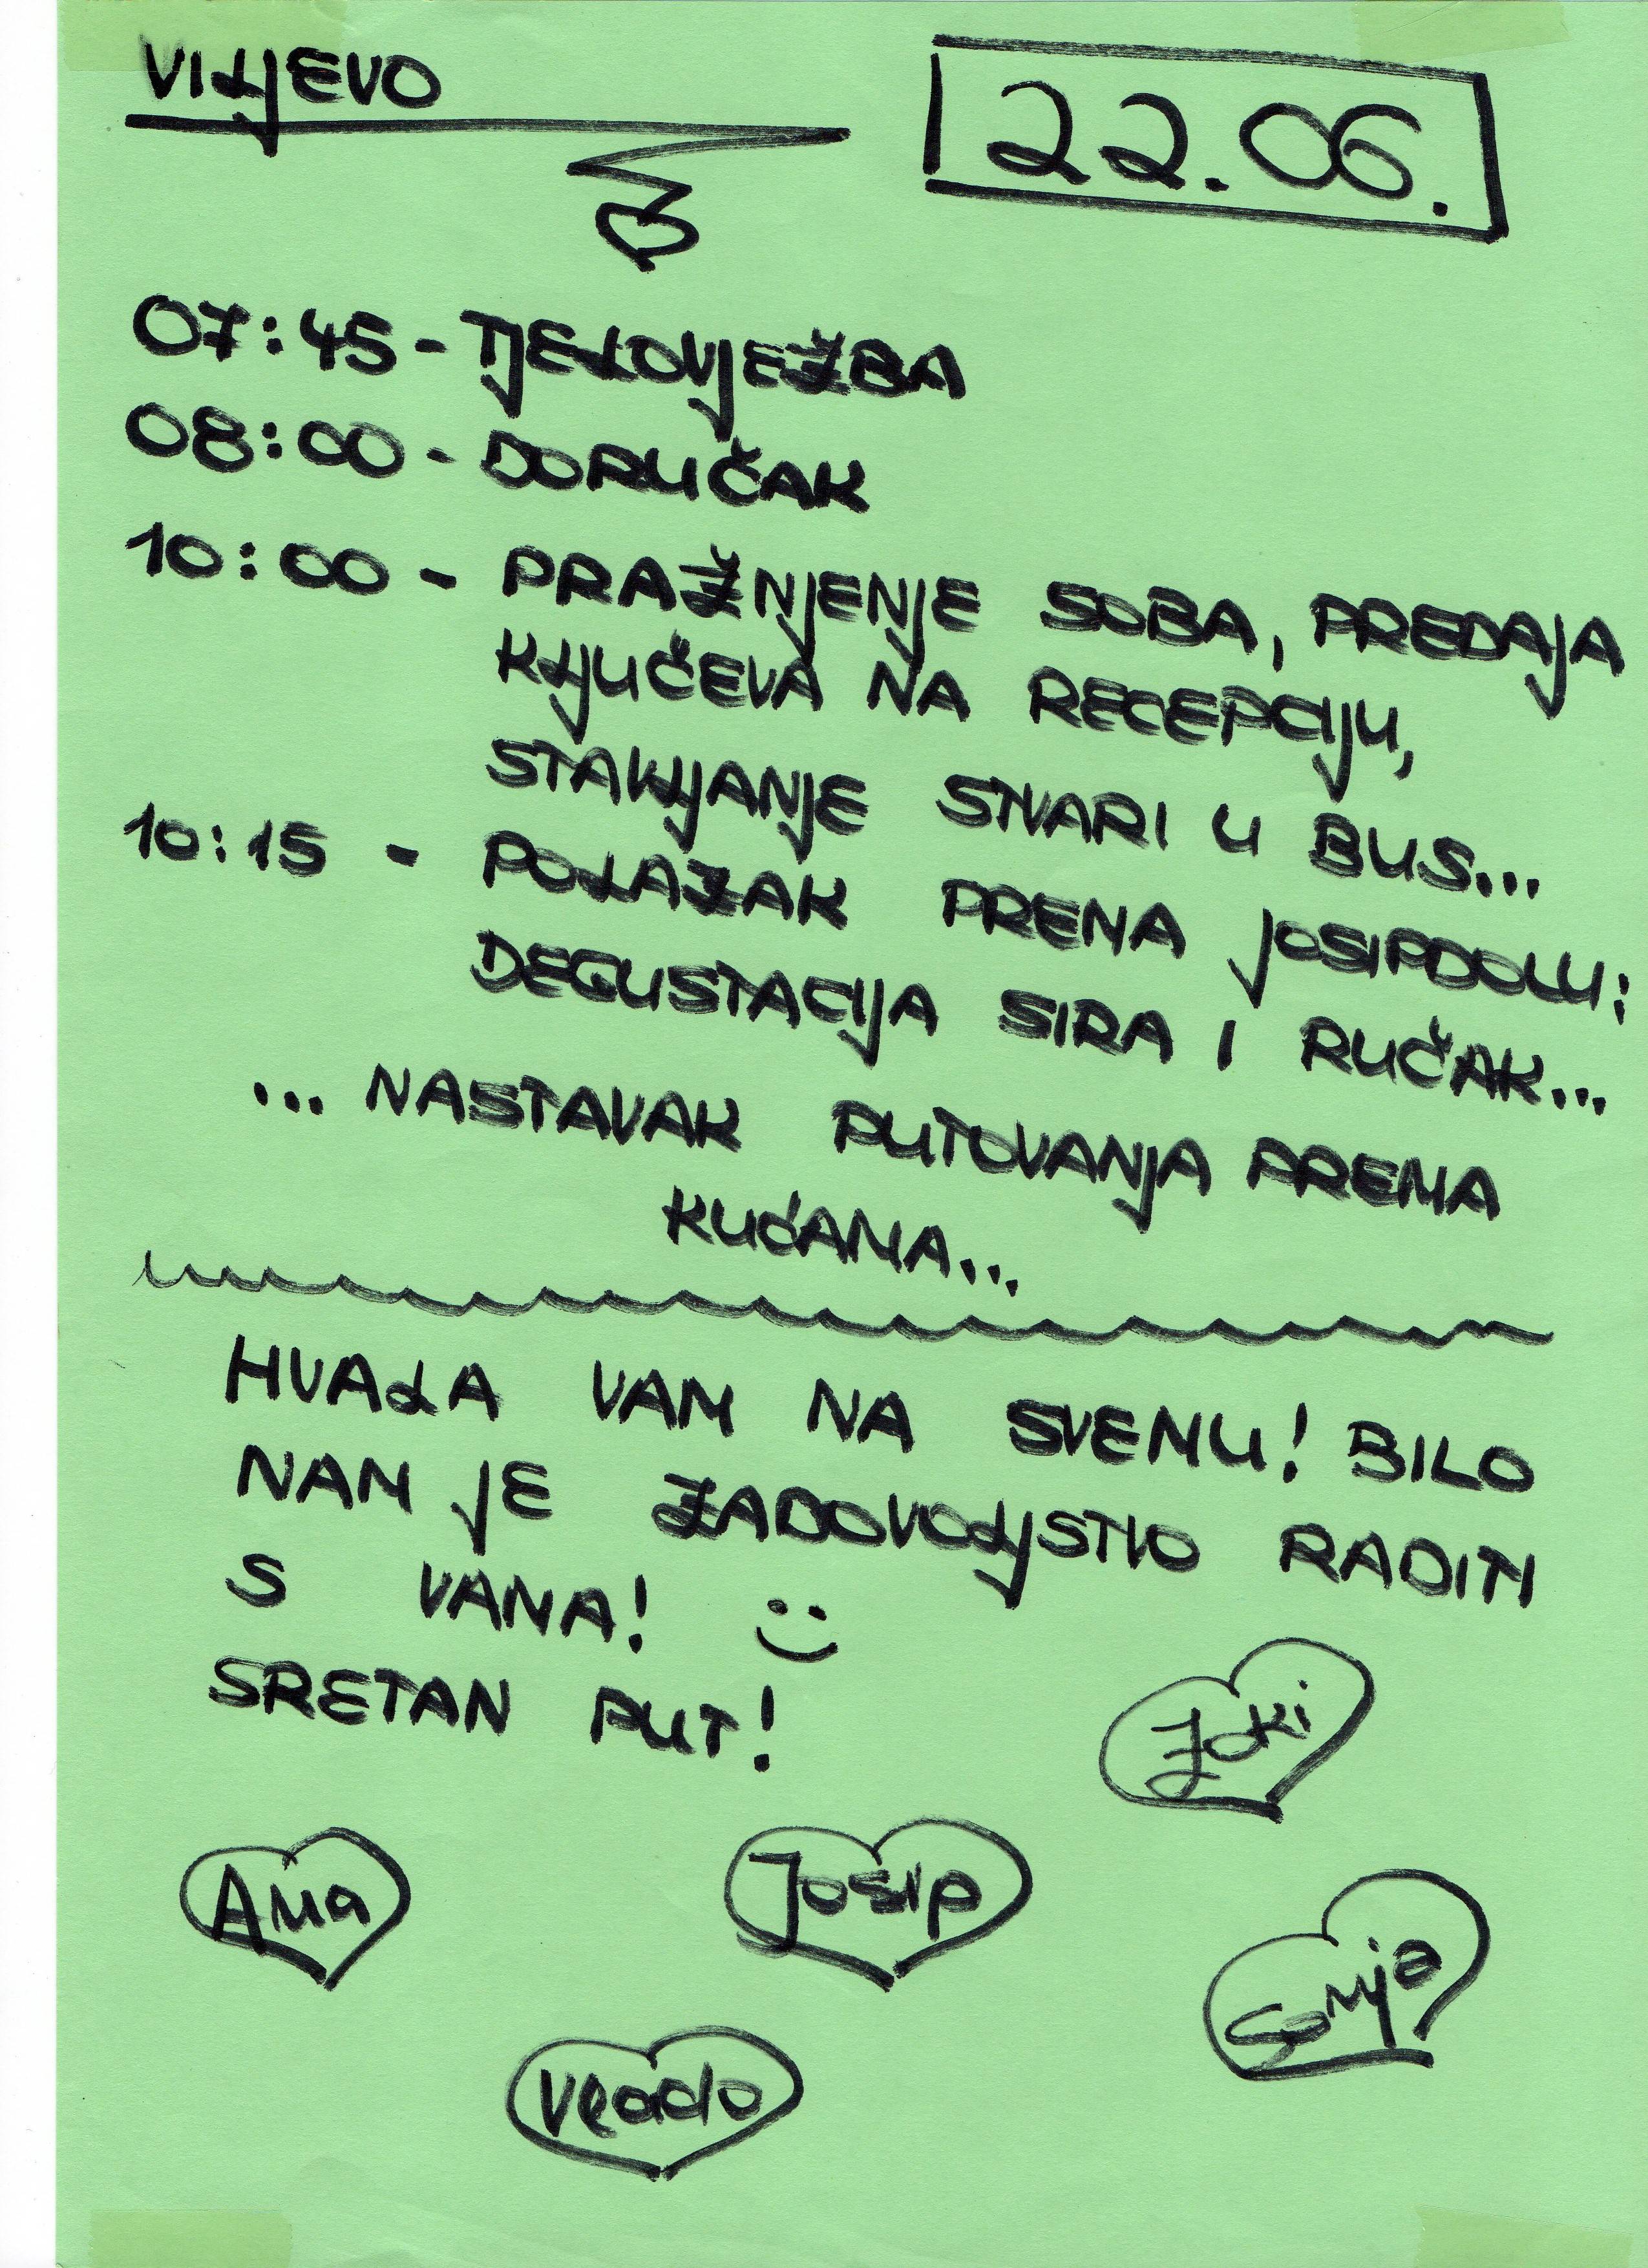 VILJEVO
22.06.
07:45 - TJELOVJEŽBA
08:00 - DORUČAK
10:00 - PRAŽNJENJE SOBA, PREDAJA
KLJUČEVA NA RECEPCIJU,
STAVLJANJE STVARI U BUS...
10:15 - POLAZAK PREMA JOSIPDOLU:
DEGUSTACIJA SIRA I RUČAK...
... NASTAVAK PUTOVANJA PREMA
KUĆAMA...
HVALA VAM NA SVEMU! BILO
NAM JE ZADOVOLJSTVO RADITI
S VAMA! :)
SRETAN PUT!
Joki
Ana
Josip
Sanja
Vlado